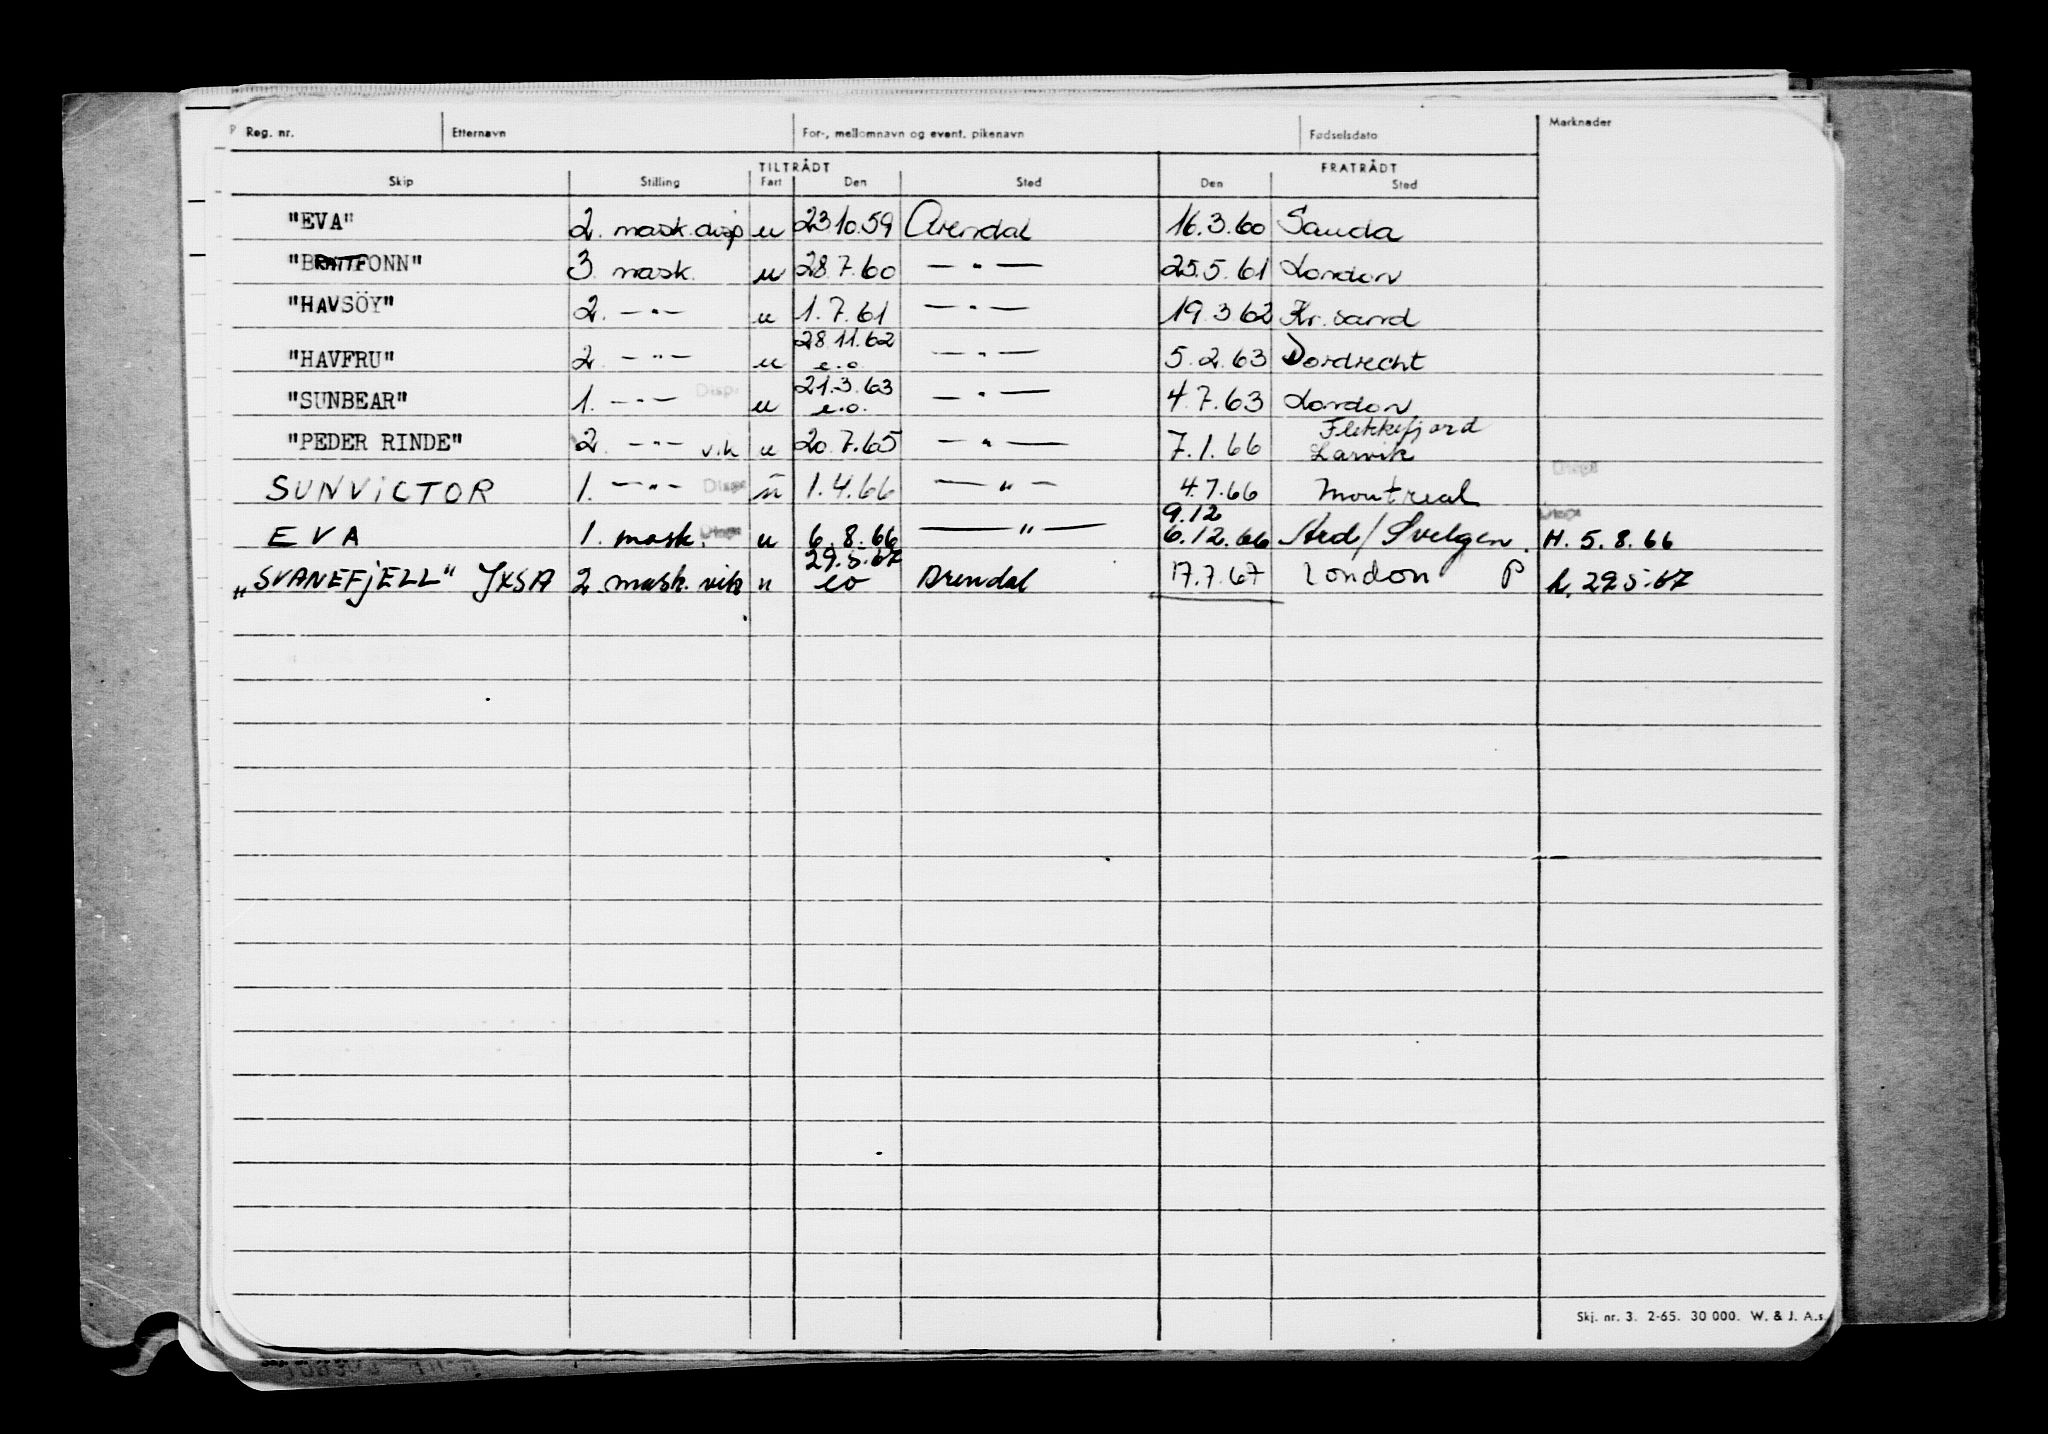 Reg. nr. Etternavn For-, mellomnavn og event. pikenavn Fødselsdato Merknader
TILTRÅDT FRATRÅDT
Skip Stilling Fart Den Sted Den Sted
"EVA" 2. mask. disp u 23.10.59 Arendal 16.3.60 Sauda
"BRATTFONN" 3. mask. u 28.7.60 — " — 25.5.61 London
"HAVSÖY" 2. — " — u 1.7.61 — " — 19.3.62 Kr. sand
"HAVFRU" 2. — " — u 28.11.62 e.o. — " — 5.2.63 Dordrecht
"SUNBEAR" 1. — " — Disp. u 21.3.63 e.o. — " — 4.7.63 London
"PEDER RINDE" 2. — " — vik u 20.7.65 — " — 7.1.66 Flekkefjord Larvik
SUNVICTOR 1. — " — Disp u 1.4.66 — " — 4.7.66 Montreal Disp
EVA 1. mask. Disp u 6.8.66 — " — 9.12 6.12.66 Ard/Svelgen. Disp H. 5.8.66
"SVANEFJELL" JXSA 2. mask. vik u 29.5.67 eo Arendal 17.7.67 London P h. 29.5.67
Skj. nr. 3. 2-65. 30 000. W. & J. A.s.